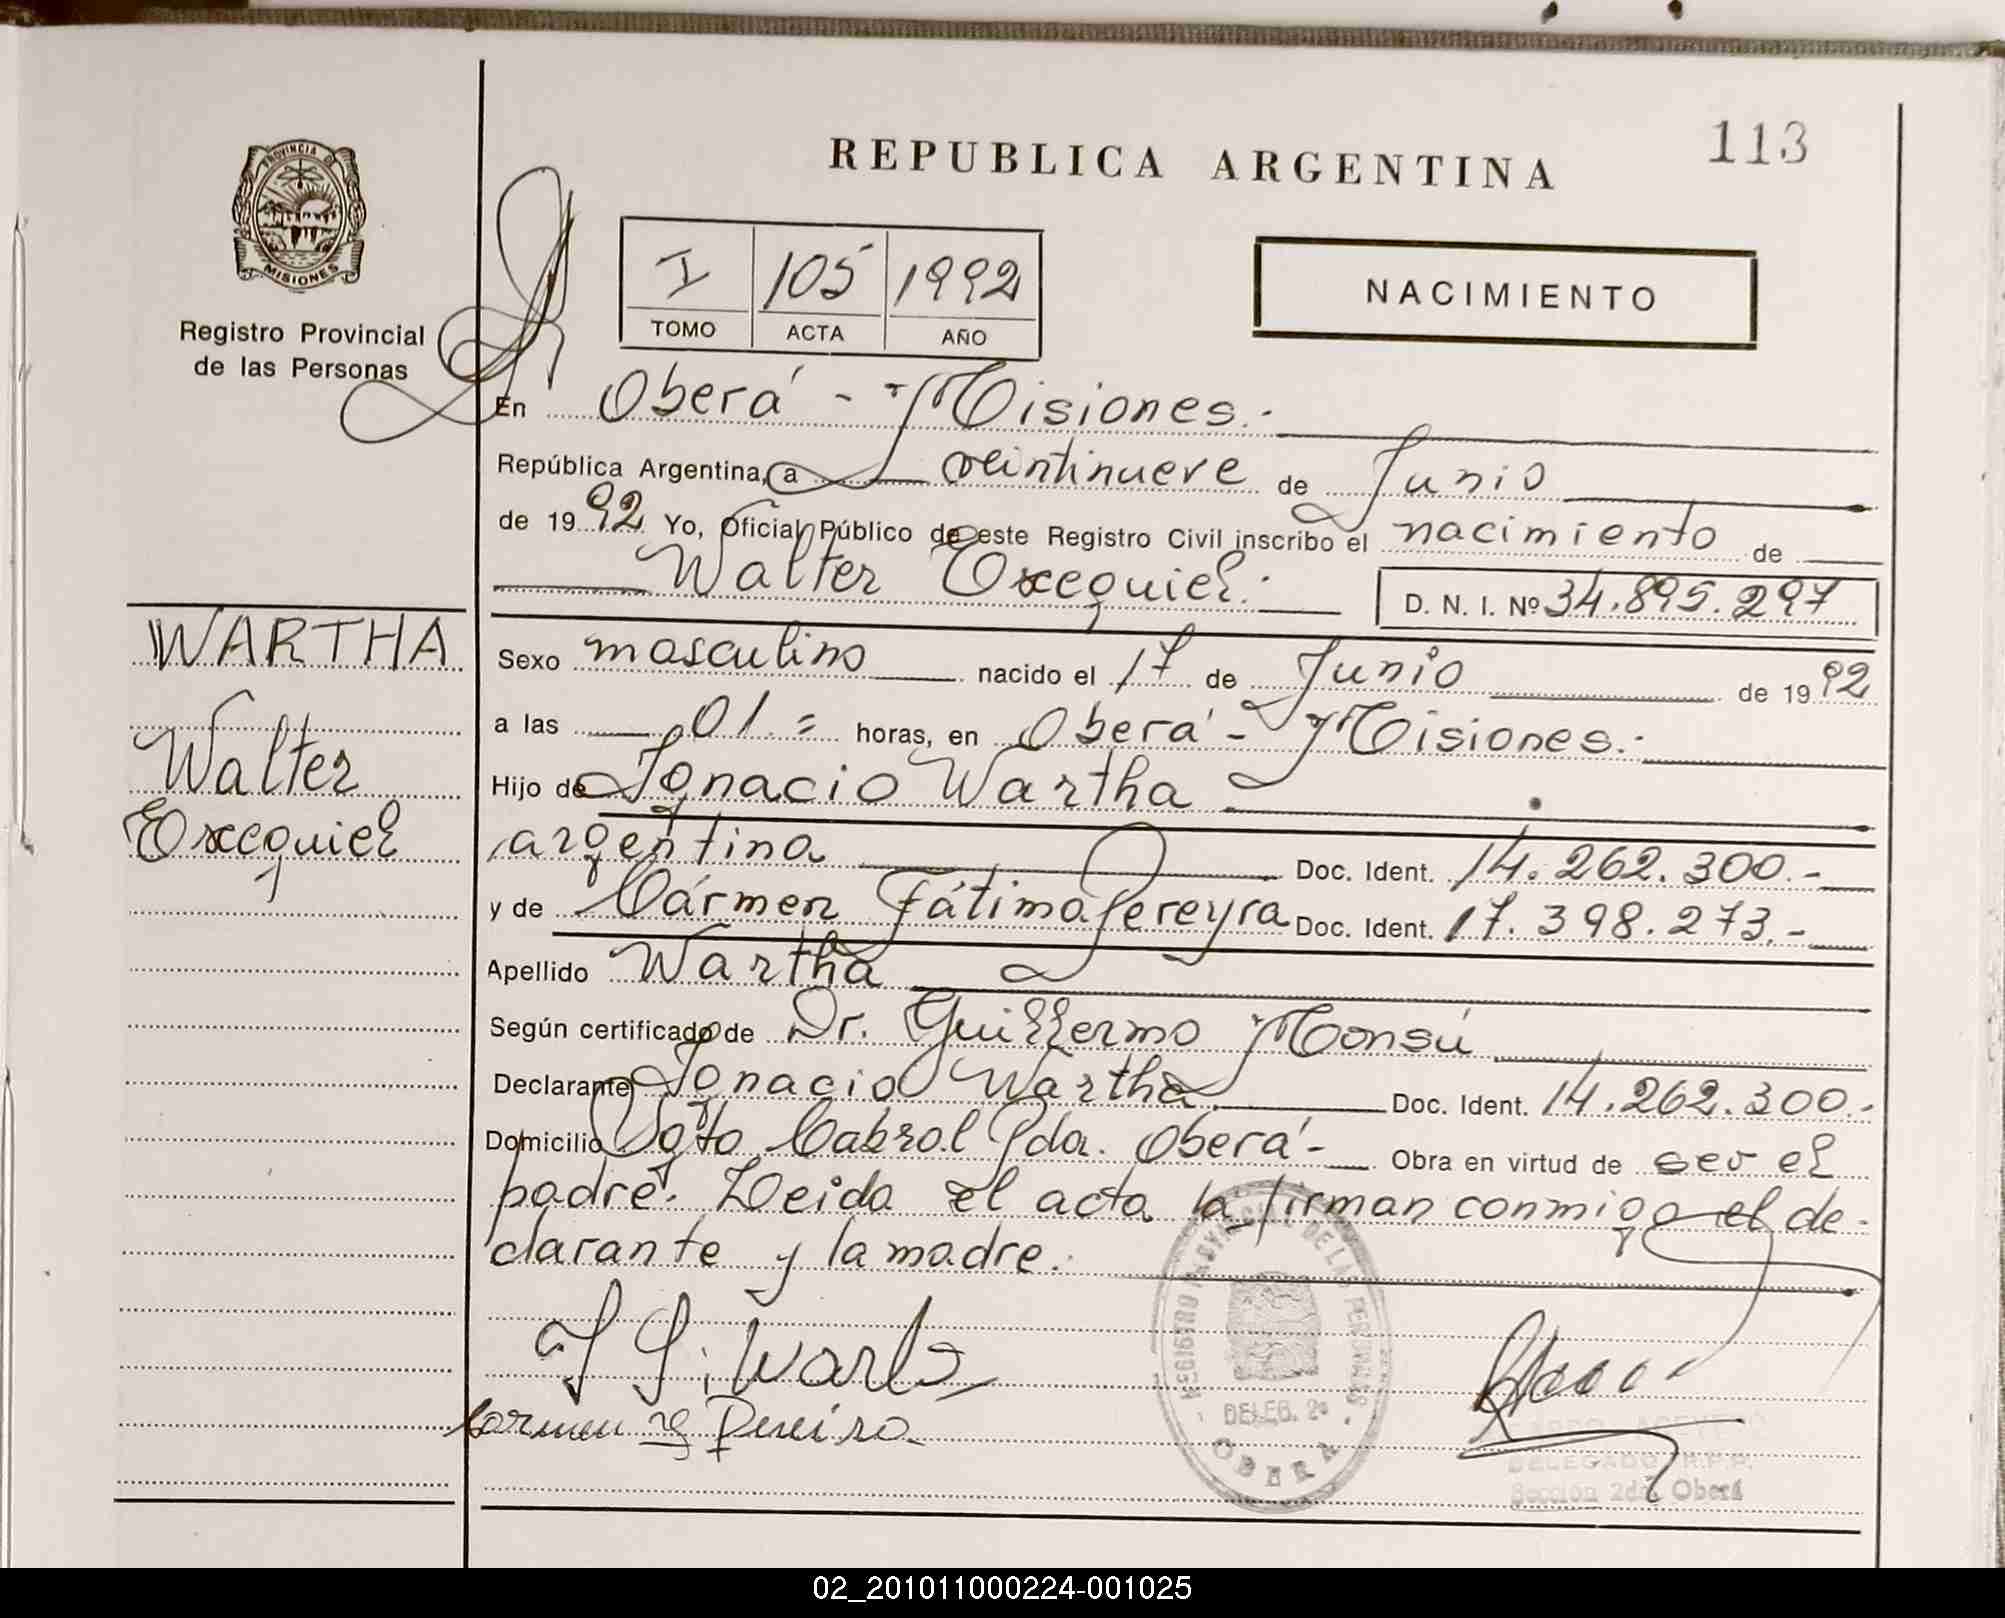 REPUBLICA ARGENTINA
113
PROVINCIA DE
MISIONES
Registro Provincial
de las Personas
I 105 1992
TOMO ACTA AÑO
NACIMIENTO
En Oberá - Misiones.-
República Argentina, a veintinueve de Junio
de 1992 Yo, Oficial Público de este Registro Civil inscribo el nacimiento de
Walter Exequiel.- D. N. I. Nº 34.895.297
WARTHA
Walter
Exequiel
Sexo masculino nacido el 17 de Junio de 1992
a las 01.= horas, en Oberá - Misiones.-
Hijo de Ignacio Wartha
argentina Doc. Ident. 14.262.300.-
y de Cármen Fátima Pereyra Doc. Ident. 17.398.273.-
Apellido Wartha
Según certificado de Dr. Guillermo Monsú
Declarante Ignacio Wartha Doc. Ident. 14.262.300.-
Domicilio Vgto Cabral Pda. Oberá - Obra en virtud de ser el
padre. Leida el acta la firman conmigo el de-
clarante y la madre.-
REGISTRO PROVINCIAL DE LAS PERSONAS
DELEG. 2ª
OBERA
DELEGADO R.P.P.
Sección 2da. Oberá
02_201011000224-001025